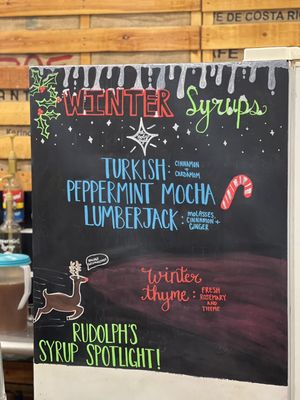 DE COSTA RI
WINTER Syrups
TURKISH: CINNAMON + CARDAMOM
PEPPERMINT MOCHA
LUMBERJACK: MOLASSES, CINNAMON + GINGER
winter
thyme: FRESH ROSEMARY AND THYME
RUDOLPH'S
SYRUP SPOTLIGHT!